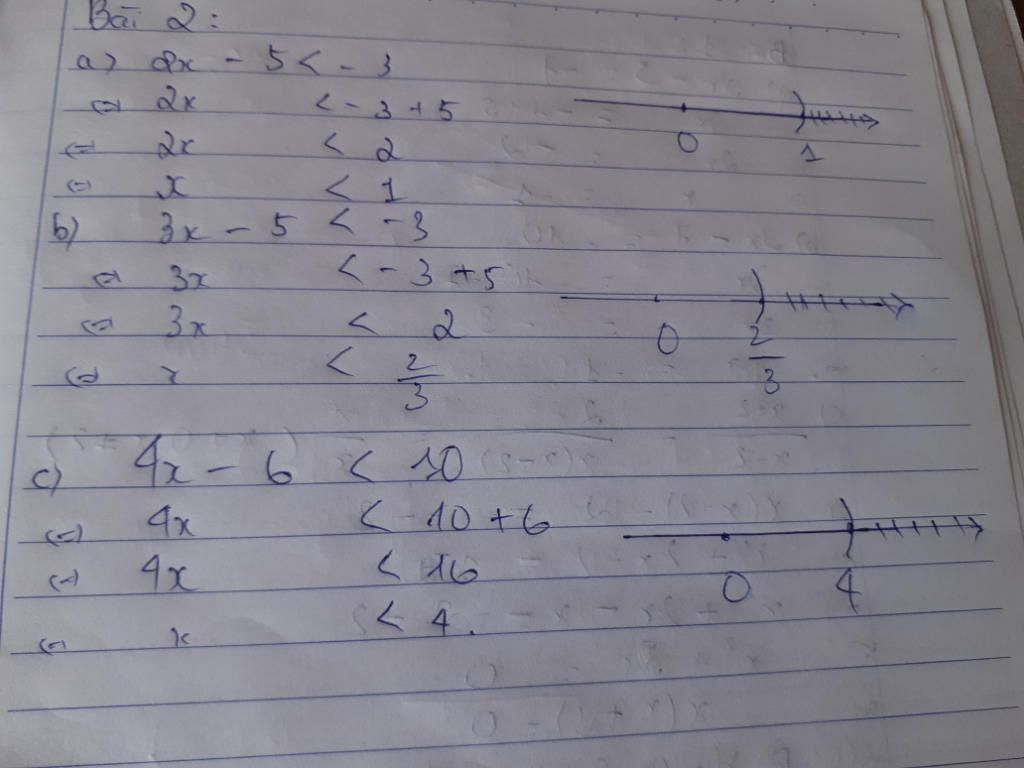 Bài 2:
a) 2x - 5 < - 3
⇔ 2x < - 3 + 5
0 1
⇔ 2x < 2
⇔ x < 1
b) 3x - 5 < -3
⇔ 3x < - 3 + 5
⇔ 3x < 2
0 2/3
⇔ x < 2/3
c) 4x - 6 < 10
⇔ 4x < 10 + 6
⇔ 4x < 16
0 4
⇔ x < 4.